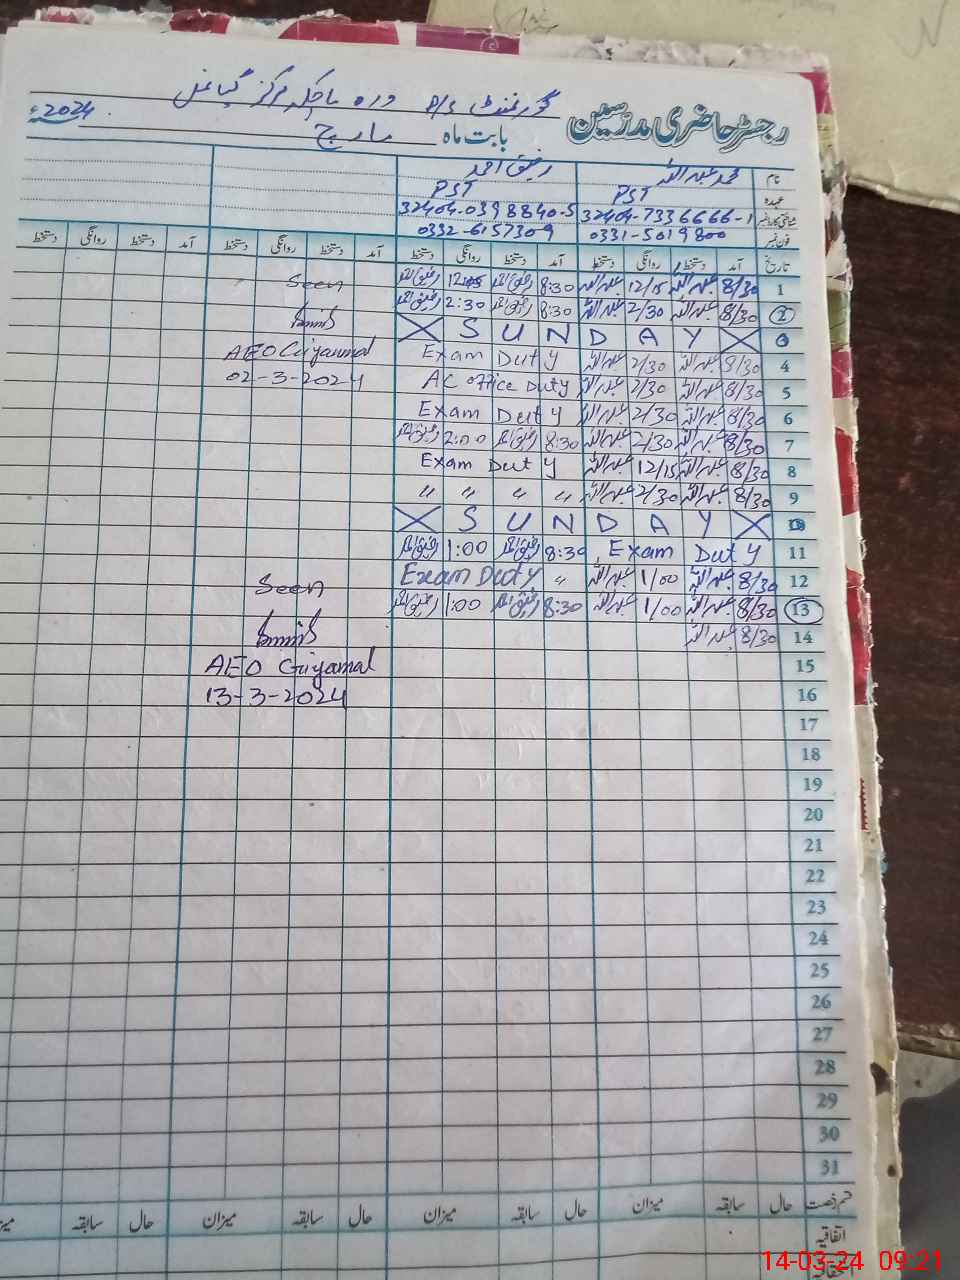 رجسٹر حاضری مدرسین گورنمنٹ P/S درہ ماچکہ مرکز گیانمل
بابت ماہ مارچ 2024ء
نام محمد عبداللہ رفیق احمد
عہدہ PST PST
شناختی کارڈ نمبر 32404-7336666-1 32404-0398840-5
فون نمبر 0331-5019800 0332-6157309
تاریخ آمد دستخط روانگی دستخط آمد دستخط روانگی دستخط آمد دستخط روانگی دستخط آمد دستخط روانگی دستخط
1 8/30 عبداللہ 12/15 عبداللہ 8:30 رفیق احمد رفیق احمد Seen
2 8/30 عبداللہ 2/30 عبداللہ 8:30 رفیق احمد 2:30 رفیق احمد
3 X S U N D A Y X
4 8/30 عبداللہ 2/30 عبداللہ Exam Duty AEO Giyanmal
5 8/30 عبداللہ 2/30 عبداللہ AC office Duty 02-3-2024
6 8/30 عبداللہ 2/30 عبداللہ Exam Duty
7 8/30 عبداللہ 2/30 عبداللہ 8:30 رفیق احمد 2:00 رفیق احمد
8 8/30 عبداللہ 12/15 عبداللہ Exam Duty
9 8/30 عبداللہ 2/30 عبداللہ " " " "
10 X S U N D A Y X
11 Exam Duty 8:30 رفیق احمد 1:00 رفیق احمد
12 8/30 عبداللہ 1/00 عبداللہ Exam Duty " Seen
13 8/30 عبداللہ 1/00 عبداللہ 8:30 رفیق احمد 1:00 رفیق احمد
14 8/30 عبداللہ
15 AEO Giyanmal
16 13-3-2024
17
18
19
20
21
22
23
24
25
26
27
28
29
30
31
قسم رخصت حال سابقہ میزان حال سابقہ میزان حال سابقہ میزان حال سابقہ
اتفاقیہ
14-03-24 09:21